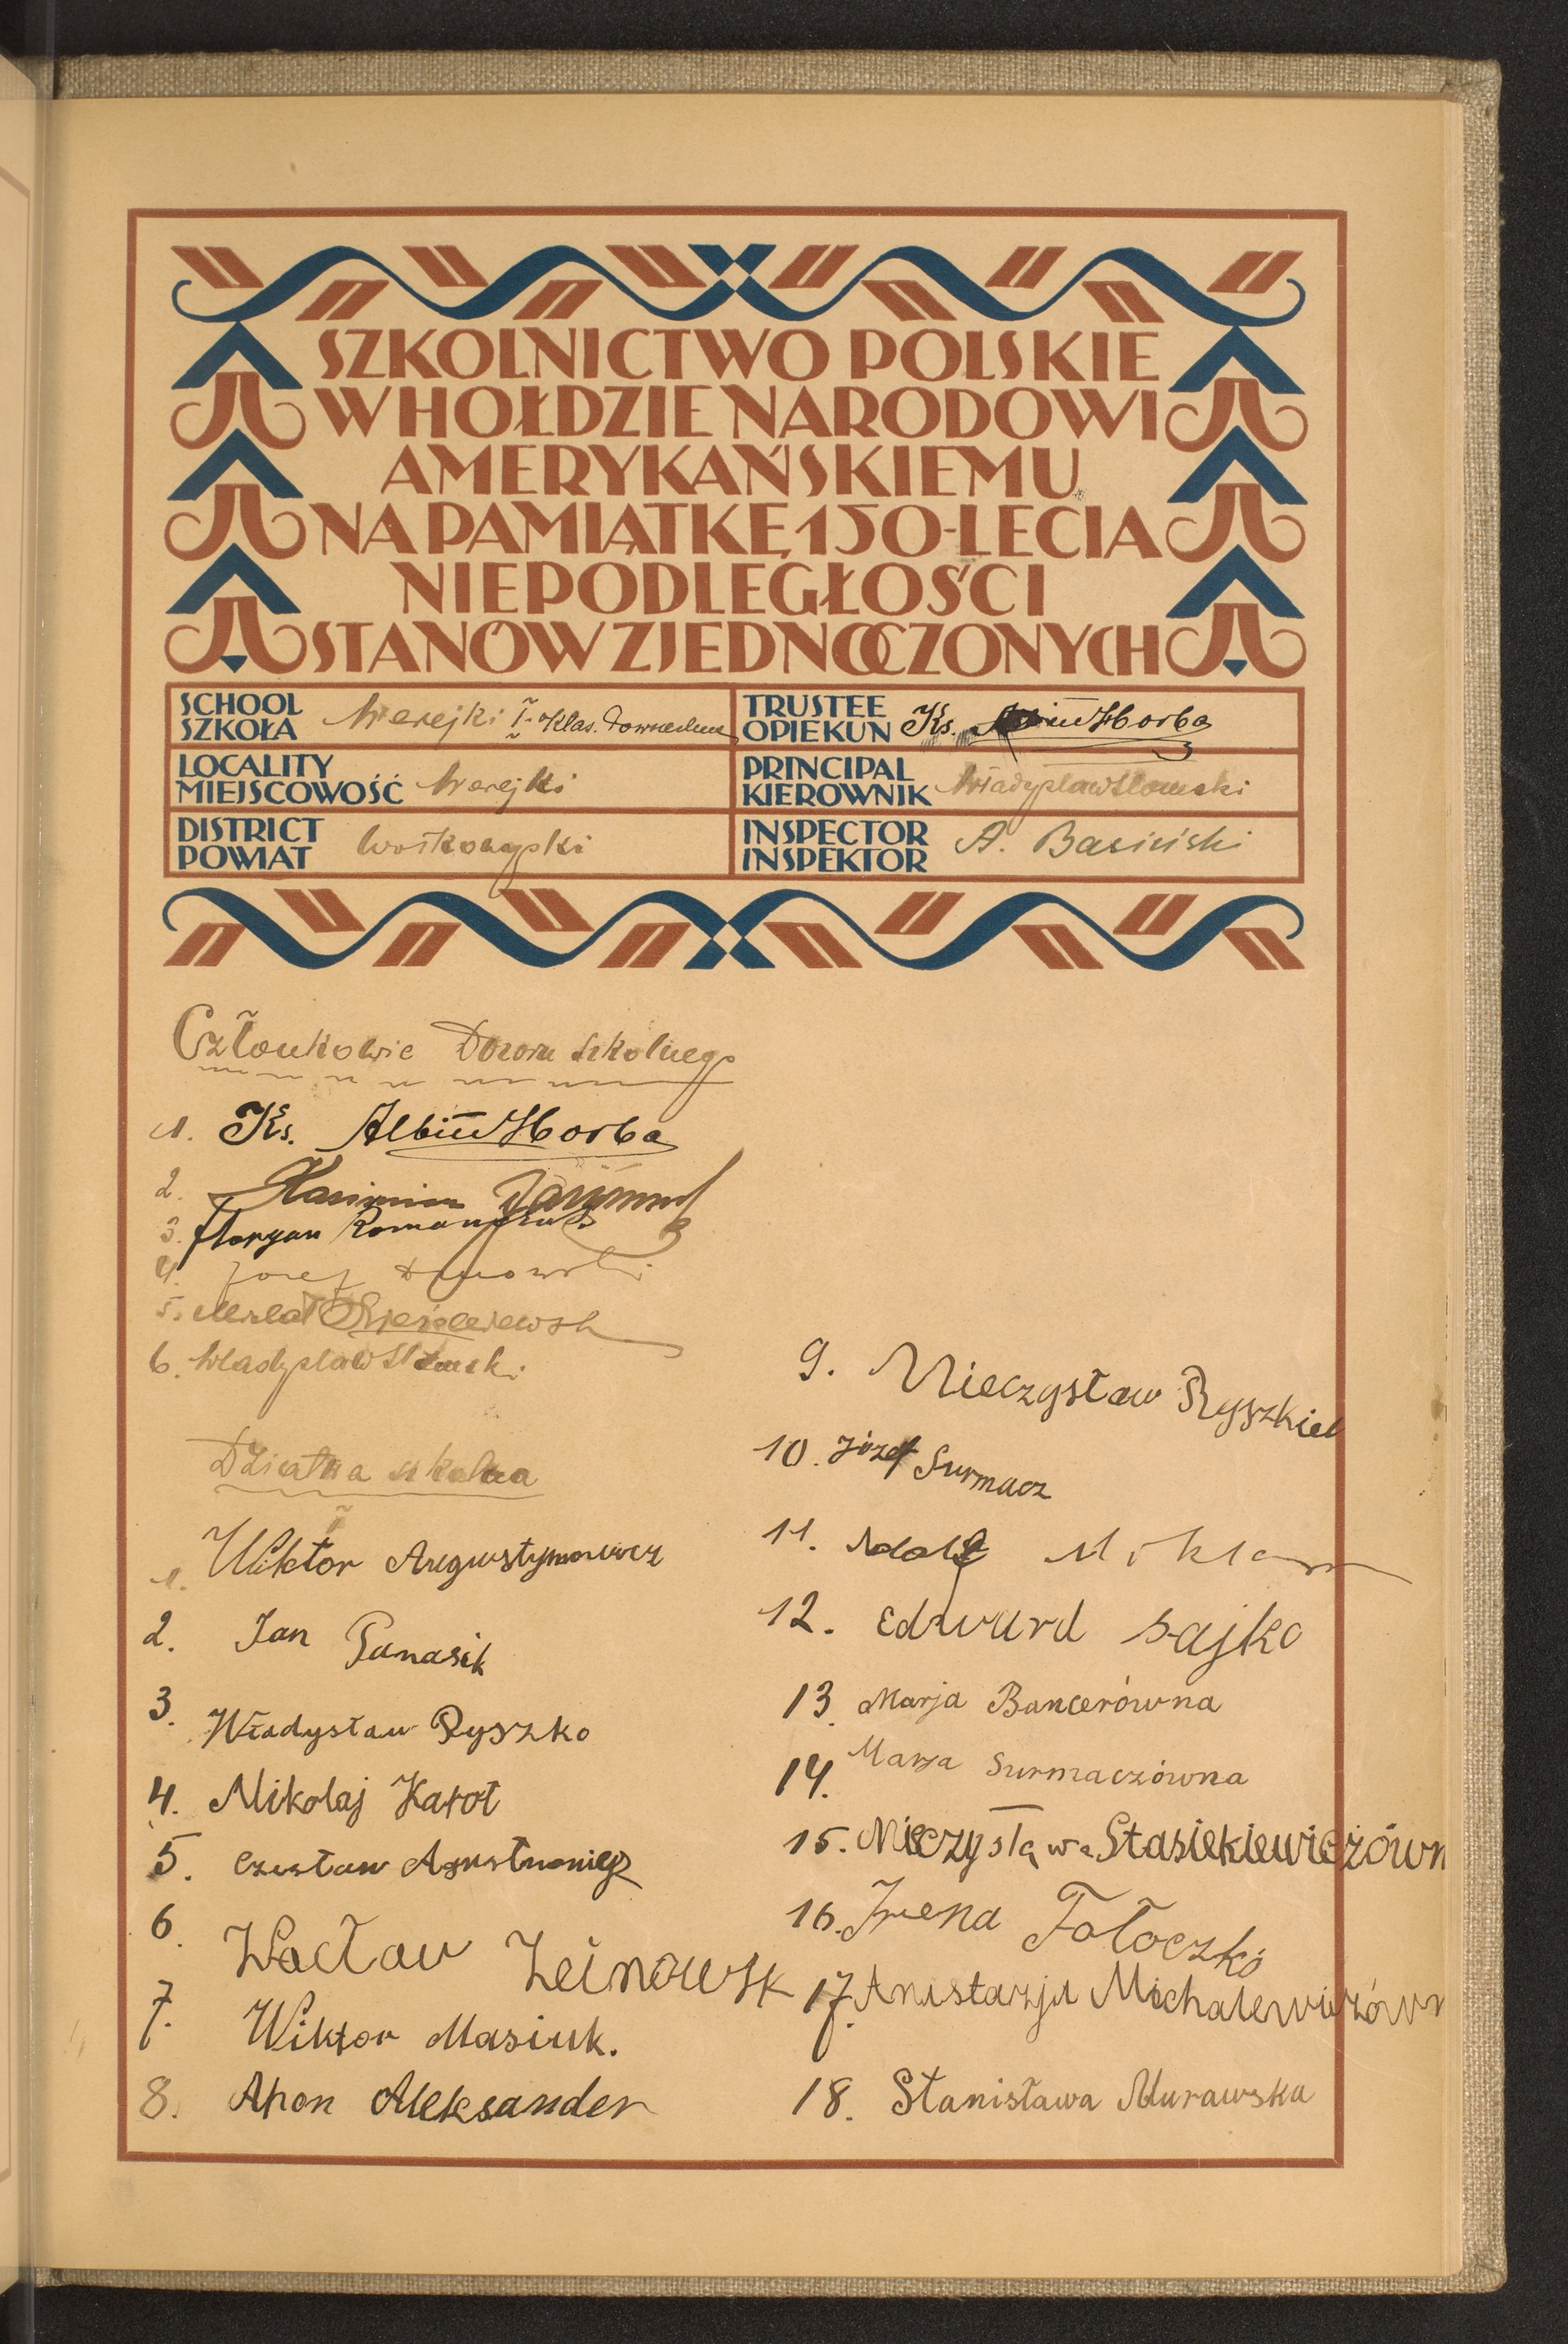 SZKOLNICTWO POLSKIE
W HOŁDZIE NARODOWI
AMERYKAŃSKIEMU
NA PAMIĄTKĘ 150-LECIA
NIEPODLEGŁOŚCI
STANÓW ZJEDNOCZONYCH
SCHOOL
SZKOŁA Werejki I-klas.
TRUSTEE
OPIEKUN Ks. Albin Horba
LOCALITY
MIEJSCOWOŚĆ Werejki
PRINCIPAL
KIEROWNIK Władysław Słomski
DISTRICT
POWIAT Wołkowyski
INSPECTOR
INSPEKTOR A. Basiński
Członkowie Dozoru szkolnego
1. Ks. Albin Horba
2. Kazimierz
3. Floryan
4. Józef
5.
6. Władysław Słomski
Dziatwa szkolna
1. Wiktor Augustynowicz
2. Jan Panasik
3. Władysław Ryszko
4. Mikolaj Karot
5. Czesław
6. Wacław Zeinowsk
7. Wiktor Masiuk.
8. Ahon Aleksander
9. Mieczysław Ryszkiel
10. Józef Surmacz
11. Adolf
12. Edward Sajko
13. Marja Bancerówna
14. Marja Surmaczówna
15. Mieczysława Stasiekiewiczówn
16. Irena Tołoczko
17. Anastazja Michalewiczówn
18. Stanisława Murawska